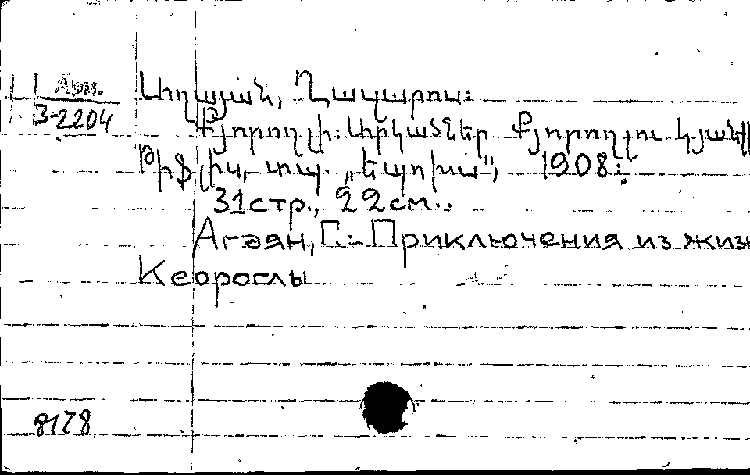 Арм.
3-2204
Աղայան, Ղազարոս:
Քյորօղլի: Արկածներ Քյորօղլու կյան
Թիֆլիս, տպ. „Եպոխա", 1908:
31стр., 22см..
Агаян, Г.- Приключения из жиз
Кеороглы
8128